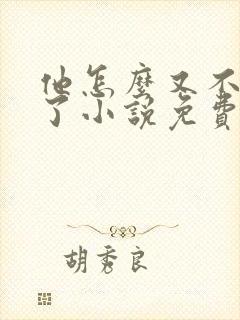 他怎麼又不
了小說免費
胡秀良